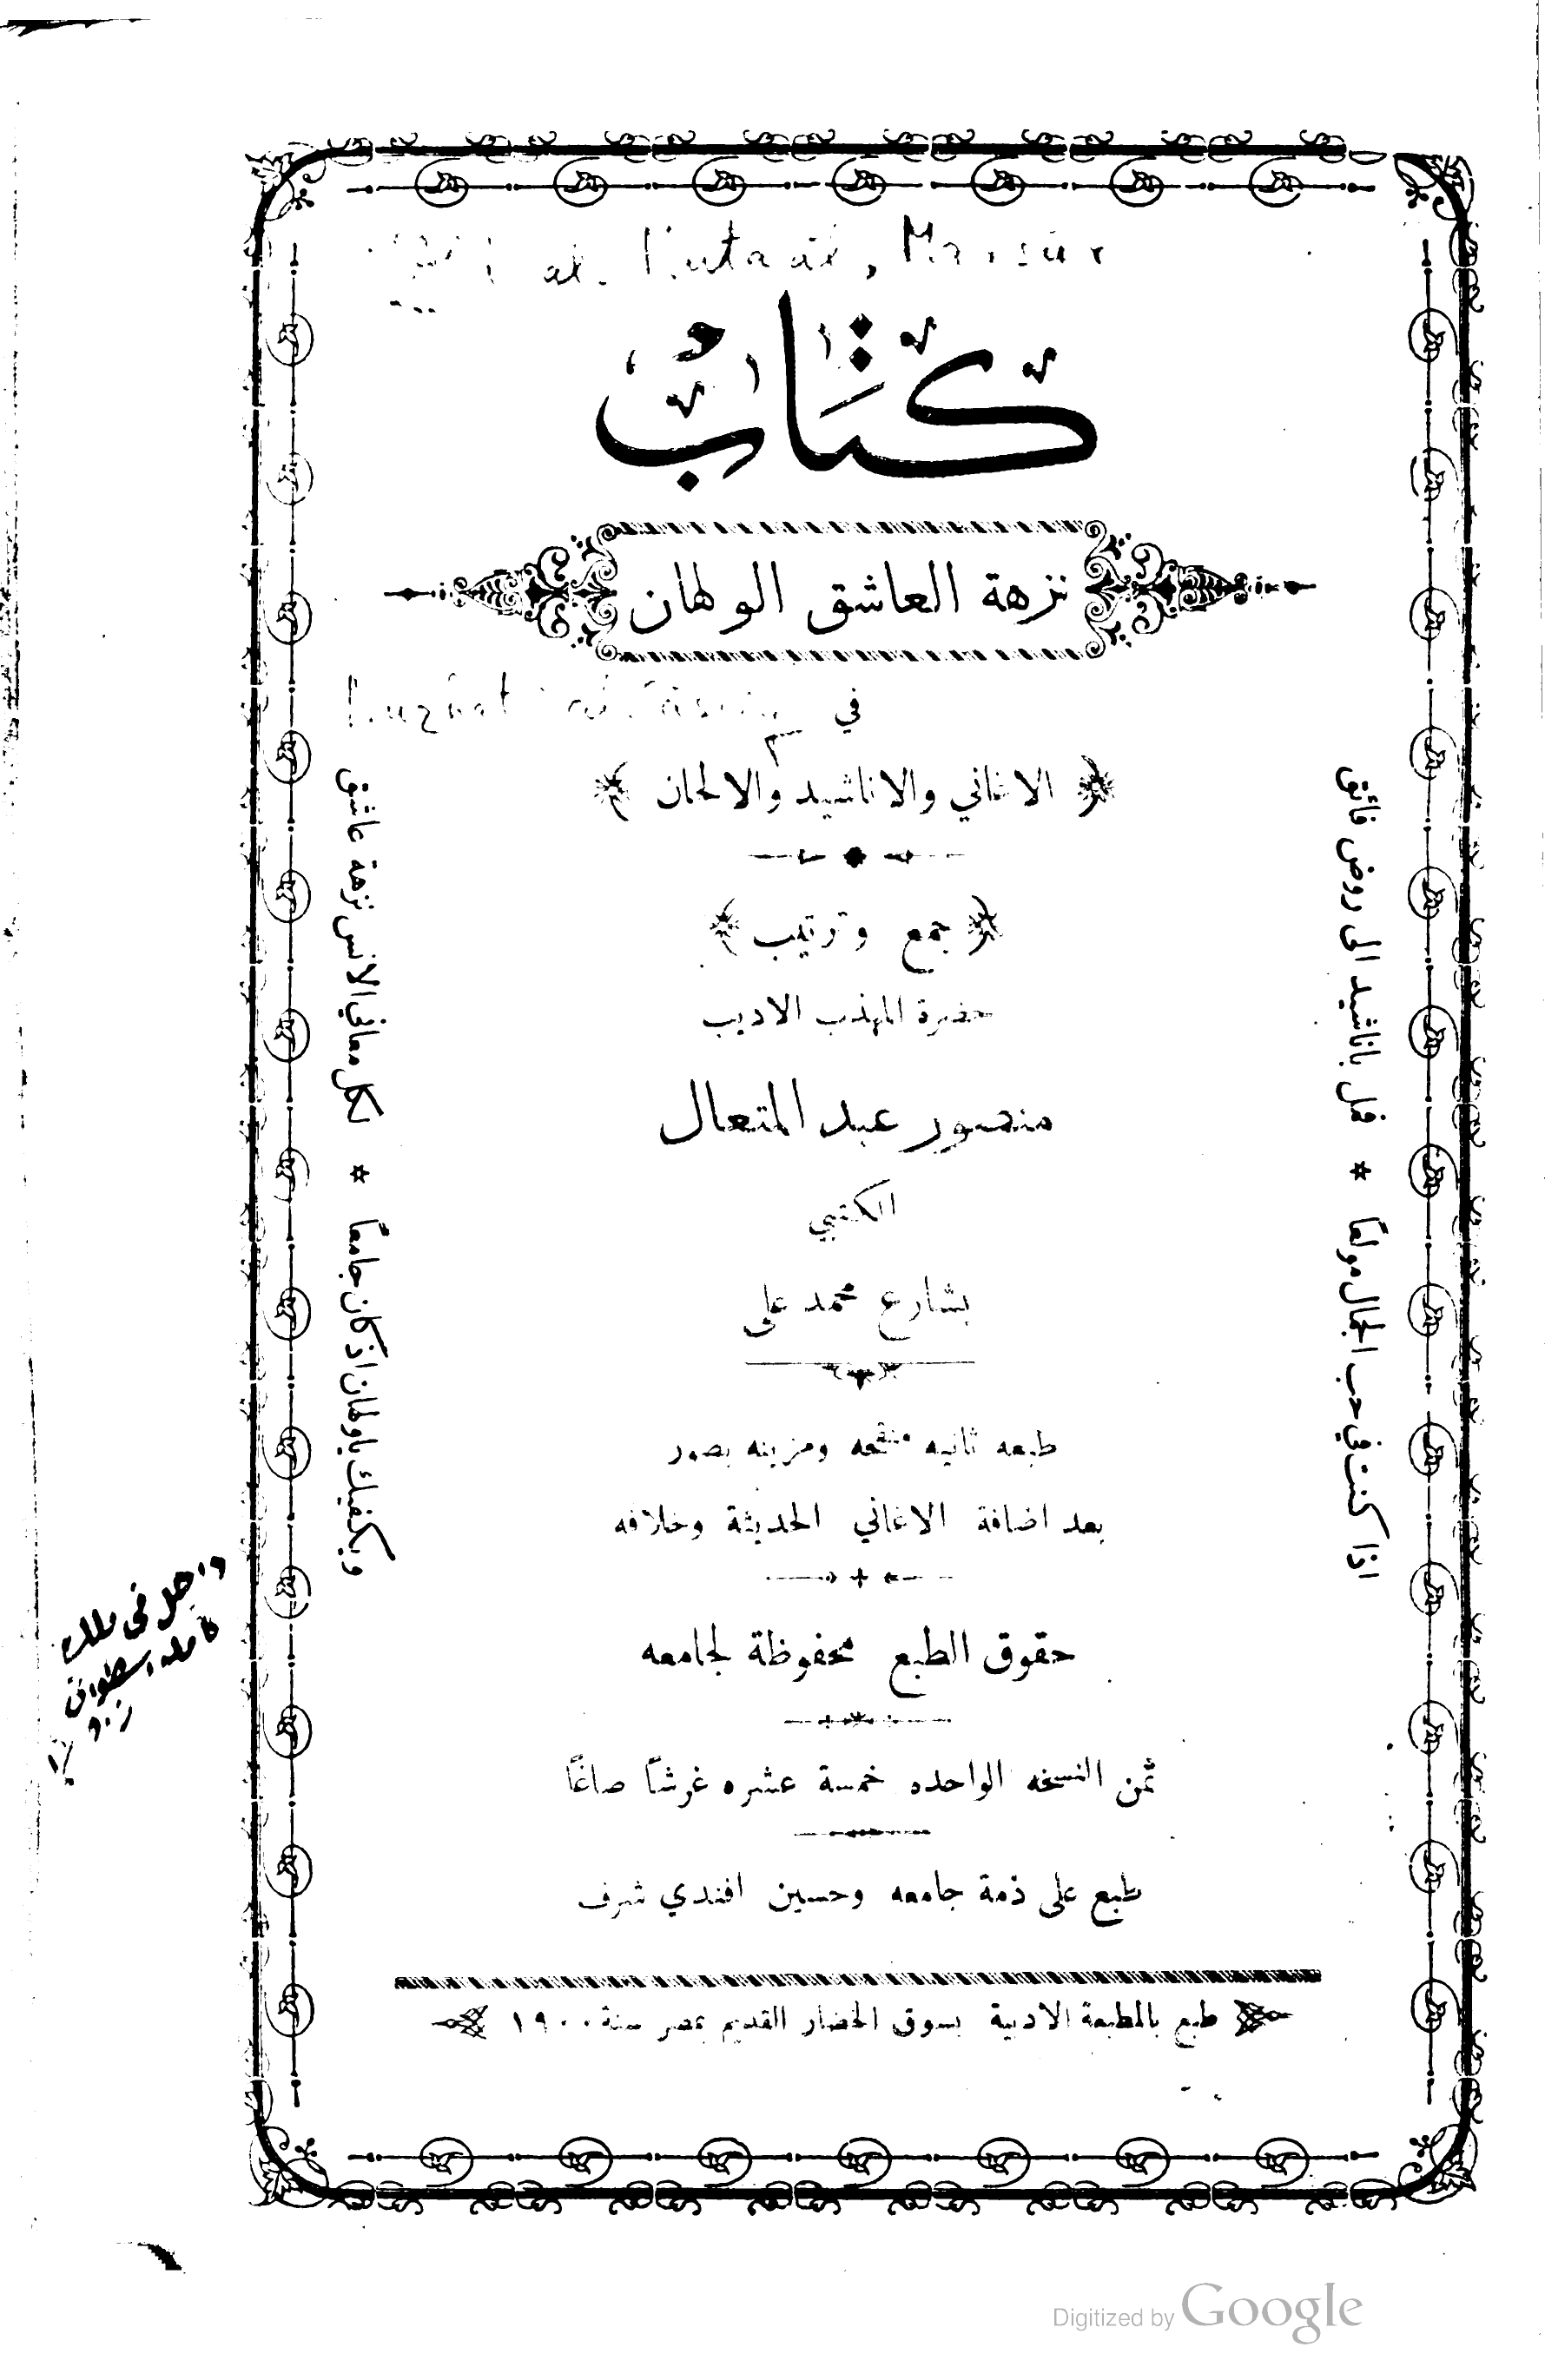 al-Muta'āl, Mansūr
كتاب
نزهة العاشق الولهان
في
الاغاني والاناشيد والالحان
جمع وترتيب
حضرة المهذب الاديب
منصور عبد المتعال
الكتبي
بشارع محمد على
طبعه ثانيه منقحه ومزينه بصور
بعد اضافة الاغاني الحديثة وخلافه
حقوق الطبع محفوظة لجامعه
ثمن النسخه الواحده خمسة عشره غرشاً صاغاً
طبع على ذمة جامعه وحسين افندي شرف
طبع بالمطبعة الادبية بسوق الخضار القديم بمصر سنة ١٩٠٠
اذا كنت في حب الجمال مولعاً * فل باناشيد الى روض فائق
ويكفيك ياولهان اذ كان جامعاً * لكل معاني الانس نزهة عاشق
Digitized by Google